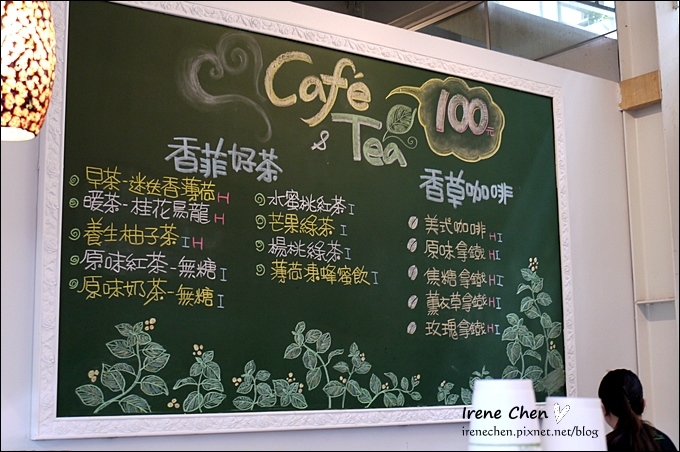 Café
& Tea
100元
香菲好茶
早茶-迷迭香薄荷 H
暖茶-桂花烏龍 H
養生柚子茶 I H
原味紅茶-無糖 I
原味奶茶-無糖 I
水蜜桃紅茶 I
芒果綠茶 I
楊桃綠茶 I
薄荷凍蜂蜜飲 I
香草咖啡
美式咖啡 H I
原味拿鐵 H I
焦糖拿鐵 H I
薰衣草拿鐵 H I
玫瑰拿鐵 H I
Irene Chen
irenechen.pixnet.net/blog